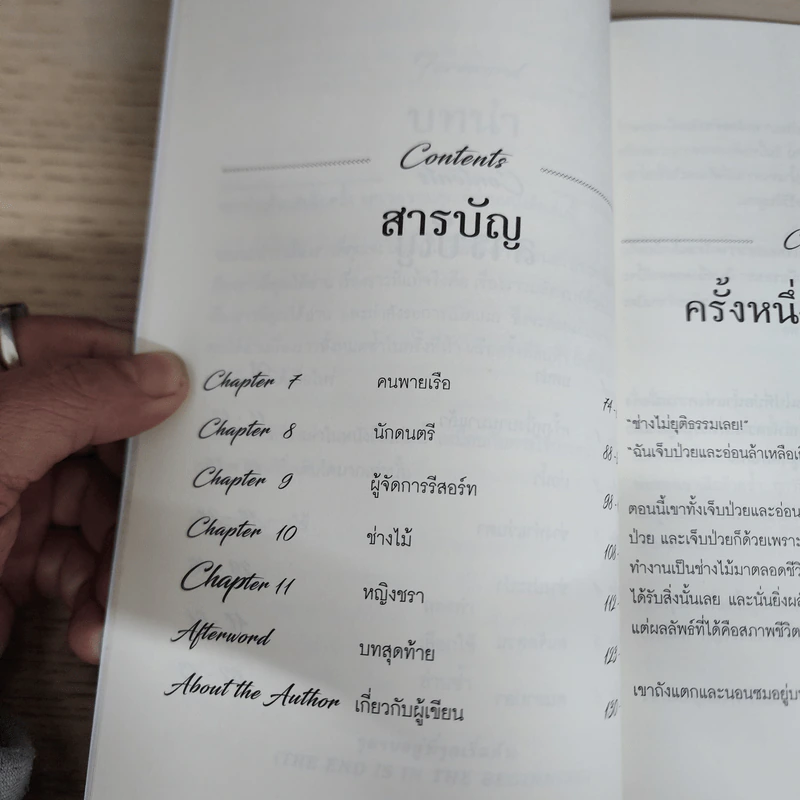 Contents
สารบัญ
Chapter 7 คนพายเรือ 74
Chapter 8 นักดนตรี 88
Chapter 9 ผู้จัดการรีสอร์ท 98
Chapter 10 ช่างไม้ 108
Chapter 11 หญิงชรา 112
Afterword บทสุดท้าย 123
About the Author เกี่ยวกับผู้เขียน 130
ครั้งหนึ่ง
"ช่างไม่ยุติธรรมเลย!"
"ฉันเจ็บป่วยและอ่อนล้าเหลือเ
ตอนนี้เขาทั้งเจ็บป่วยและอ่อน
ป่วย และเจ็บป่วยก็ด้วยเพราะ
ทำงานเป็นช่างไม้มาตลอดชีวิ
ได้รับสิ่งนั้นเลย และนั่นยิ่งผลั
แต่ผลลัพธ์ที่ได้คือสภาพชีวิต
เขาถังแตกและนอนซมอยู่บ